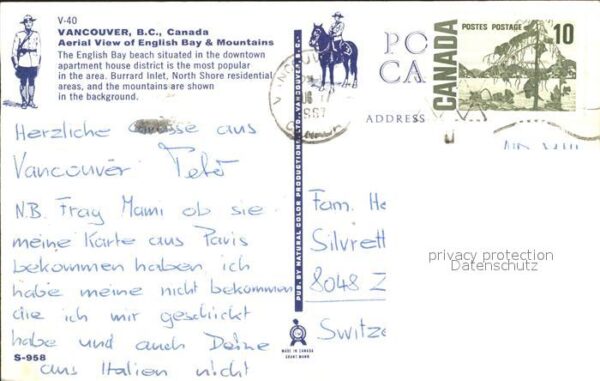 V-40
VANCOUVER, B.C., Canada
Aerial View of English Bay & Mountains
The English Bay beach situated in the downtown
apartment house district is the most popular
in the area. Burrard Inlet, North Shore residential
areas, and the mountains are shown
in the background.
Herzliche Grüsse aus
Vancouver Peter
N.B. Frag Mami ob sie
meine Karte aus Paris
bekommen haben ich
habe meine nicht bekommen
die ich mir geschickt
habe und auch Deine
aus Italien nicht
S-958
PUB. BY NATURAL COLOR PRODUCTIONS LTD., VANCOUVER, B.C.
MADE IN CANADA
GRANT MANN
VANCOUVER
PO
CA
ADDRESS
CANADA
POSTES POSTAGE
10
Fam. He
Silvrett
8048 Z
Switze
privacy protection
Datenschutz